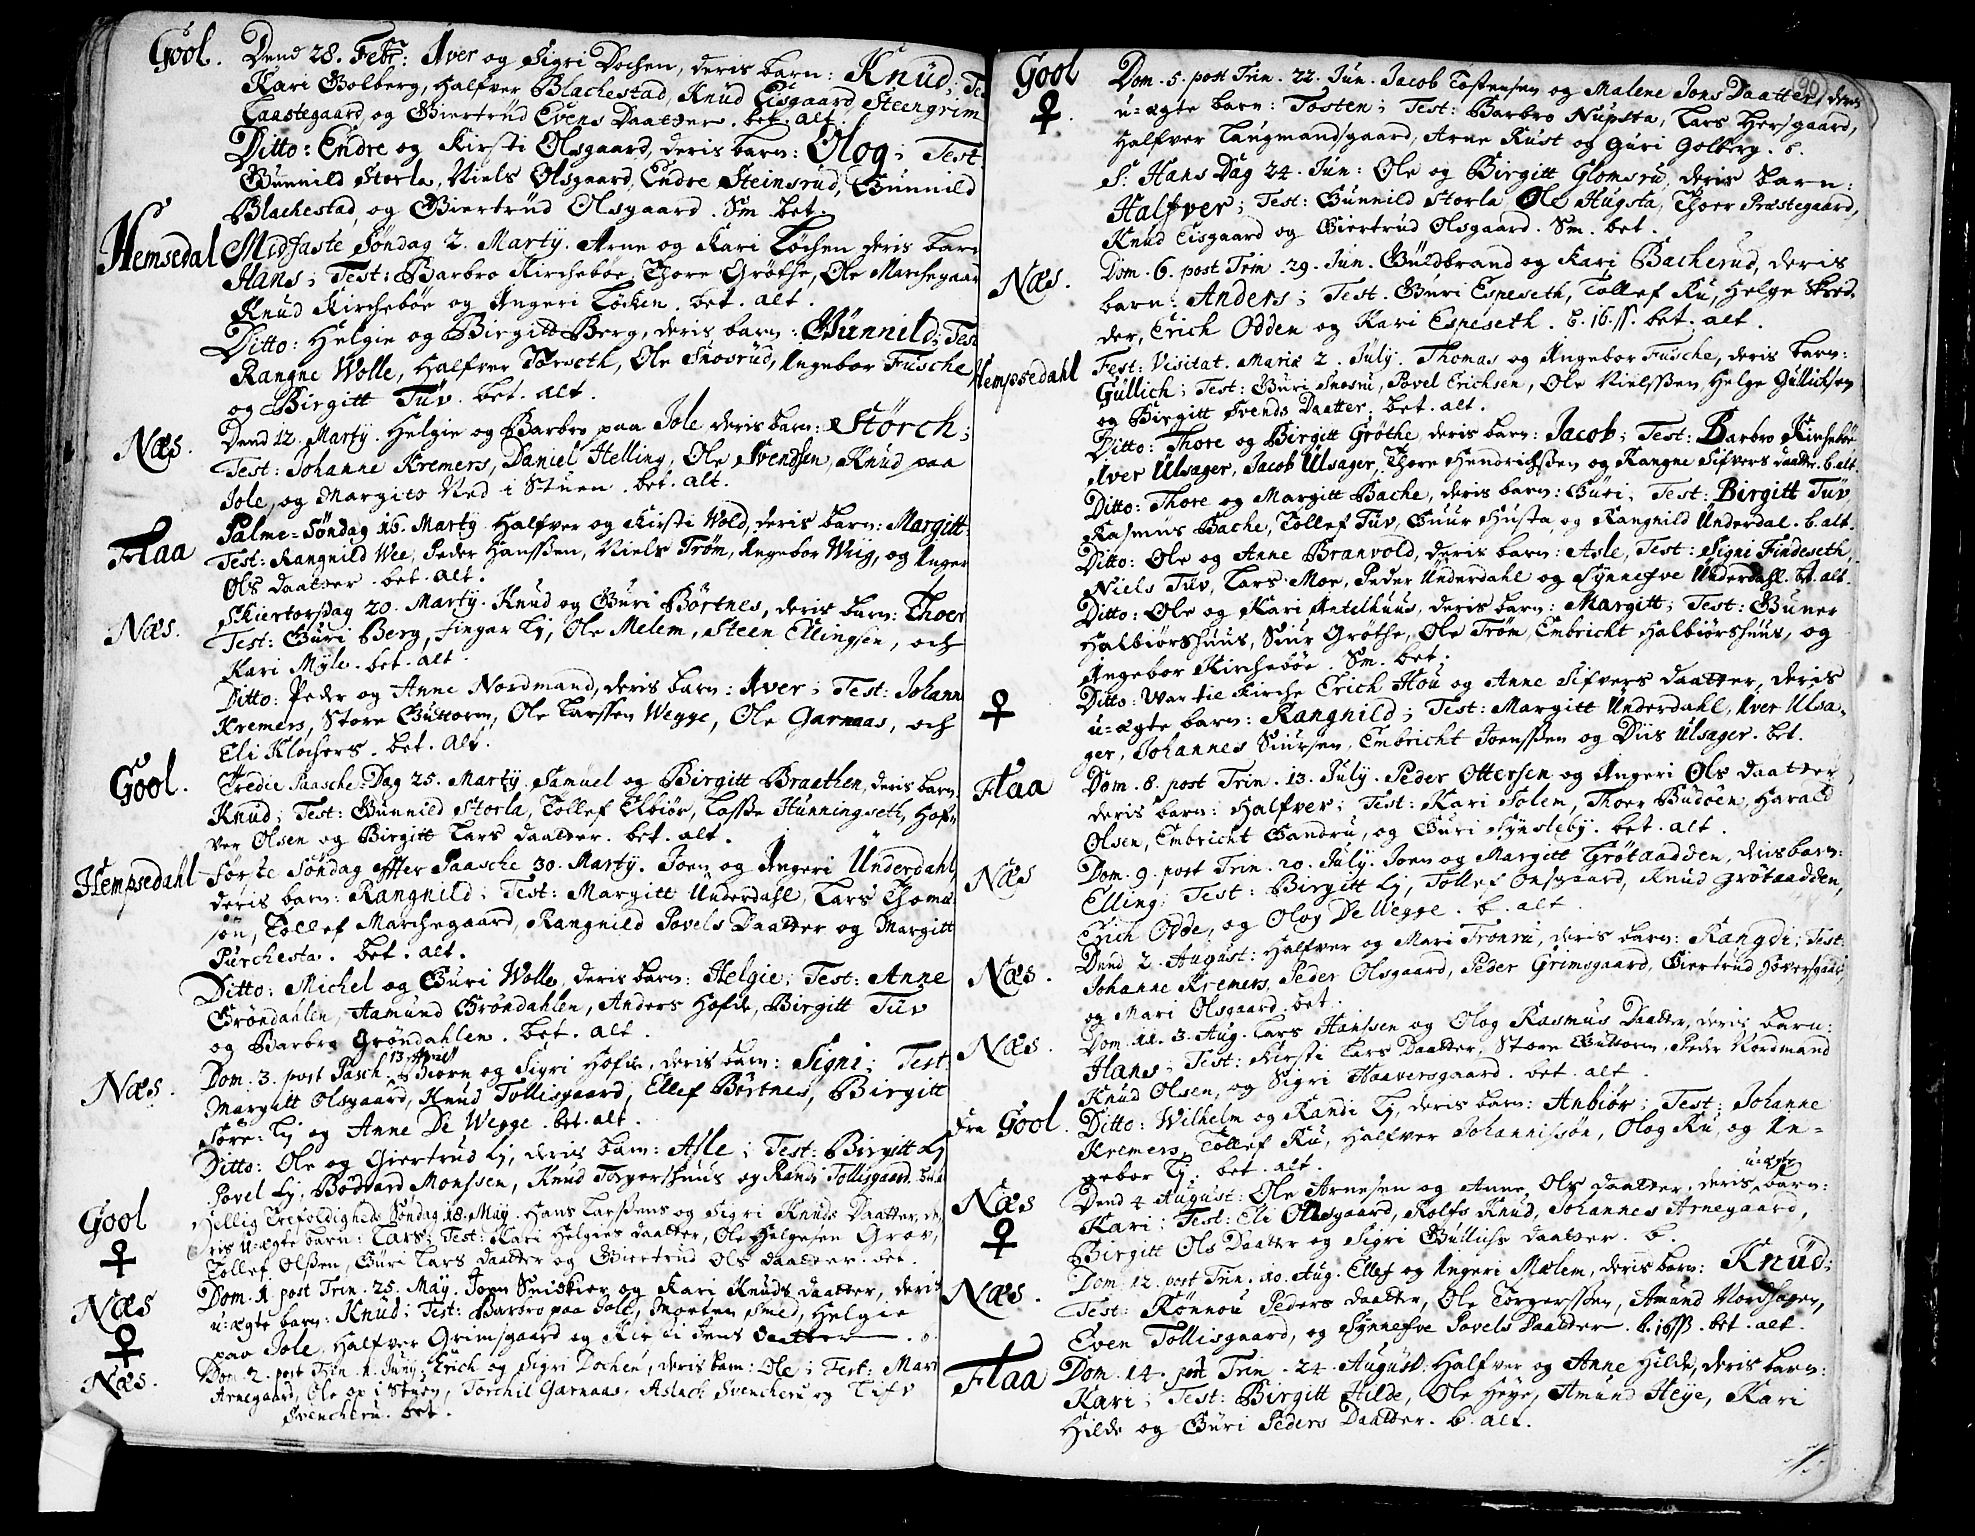 Gool. Dend 28. Febr: Iver og Sigri Dochen, deris barn: Knud; Te
Kari Golberg, Halfver Blachestad, Knud Eisgaard, Steengrim
Laastegaard, og Giertrud Evens Daatter. bet. alt.
Ditto: Endre og Kirsti Olsgaard, deris barn: Olog; Test:
Gunnild Storla, Niels Olsgaard, Endre Steinsrud, Gunnild
Blachestad, og Giertrud Olsgaard. Sm. bet.
Hemsedal Midfaste Søndag 2. Marty. Arne og Kari Løchen deris barn
Hans; Test: Barbro Kirchebøe, Thore Grøthe, Ole Marchegaar
Knud Kirchebøe og Ingeri Løcken. bet. alt.
Ditto: Helgie og Birgitt Berg, deris barn: Gunnild; Test
Rangne Wolle, Halfver Torseth, Ole Snosrud, Ingebor Fusche
og Birgitt Tuv. bet. alt.
Næs. Dend 12. Marty. Helgie og Barbro paa Jole, deris barn: Størch;
Test: Johanne Kremers, Daniel Helling, Ole Svendsen, Knud paa
Jole, og Margito Ned i Stuen. bet. alt.
Flaa Palme-Søndag 16. Marty. Halfver og Kirsti Vold, deris barn: Margitt
Test: Rangnild Wee, Peder Hanssen, Niels Trøm, Ingebor Wiig, og Inger
Ols Daatter. bet. alt.
Næs. Skiertorsdag 20. Marty. Knud og Guri Børtnes, deris barn: Thoer
Test: Guri Berg, Fingar Lj, Ole Melem, Steen Ellingsen, och
Kari Myle. bet. alt.
Ditto: Peder og Anne Nordmand, deris barn: Iver; Test: Johann
Kremers, Store Guttorm, Ole Larssen Wegge, Ole Garnaas, och
Eli Klochers. bet. alt.
Gool. Tredie Paasche-Dag 25. Marty. Samuel og Birgitt Braathen, deris barn
Knud; Test: Gunnild Storla, Tollef Elbiør, Lasse Hunningseth, Hof-
ver Olsen og Birgitt Lars Daatter. bet. alt.
Hempsedahl Første Søndag effter Paasche 30. Marty. Joen og Ingeri Underdahl
deris barn: Rangnild; Test: Margitt Underdahl, Lars Thoma
søn, Tollef Marchegaard, Rangnild Povels Daatter og Margitt
Purchesta. bet. alt.
Ditto: Michel og Guri Wolle, deris barn: Helgie; Test: Anne
Grøndahlen, Aamund Grøndahlen, Anders Hofde, Birgitt Tuv
og Barbro Grøndahlen. bet. alt.
Næs. Dom. 3. post Pasch. 13. April Biørn og Sigri Hofde, deris barn: Signi; Test
Margitt Olsgaard, Knud Tollisgaard, Ellef Børtnes, Birgitt
Søre-Lj og Anne De Wegge. bet. alt.
Ditto: Ole og Giertrud Lj, deris barn: Asle; Test: Birgitt Lj
Povel Lj, Bødvard Monssen, Knud Torgershuus og Randi Tollisgaard. b. al
Gool ♀ Hellig Trefoldigheds Søndag 18. May. Hans Larssens og Sigri Knuds Daatter, de-
ris u-ægte barn: Lars; Test: Kari Helgies Daatter, Ole Helgesen Grov,
Tollef Olssen, Guri Lars Daatter og Giertrud Ols Daatter. bet.
Næs ♀ Dom. 1. post Trin. 25. May. Joen Snidker og Kari Knuds Daatter, deris
u-ægte barn: Knud; Test: Barbro paa Jole, Morten Smed, Helgie
paa Jole, Halfver Grimsgaard og Kirsti Jens Daatter.
Næs. Dom. 2. post Trin. 1. Juny. Erich og Sigri Dochen, deris barn: Ole; Test: Mari
Arnegaard, Ole op i Stuen, Torchil Garnaas, Aslach Svencheru og
Svencheru. bet.
90
Gool ♀ Dom. 5. post Trin. 22. Jun. Jacob Tostensen og Malene Jons Daatter, deris
u-ægte barn: Tosten; Test: Barbro Nupsta, Lars Hersgaard,
Halfver Laugmandsgaard, Arne Rust og Guri Golberg. b.
S. Hans Dag 24. Jun: Ole og Birgitt Glomsru, deris barn:
Halfver; Test: Gunnild Storla, Ole Hugsta, Thoer Præstegaard,
Knud Eisgaard og Giertrud Olsgaard. Sm. bet.
Næs. Dom. 6. post Trin. 29. Jun. Guldbrand og Kari Bacherud, deris
barn: Anders; Test. Guri Espeseth, Tollef Ru, Helge Skred-
der, Erich Odden og Kari Espeseth. b. 16. ss. bet. alt.
Hempsedahl Fest: Visitat. Mariæ 2. July. Thomas og Ingebor Fusche, deris barn:
Gullich; Test: Guri Snosru, Povel Erichsen, Ole Nielssen, Helge Gullichsen
og Birgitt Svends Daatter. bet. alt.
Ditto: Thore og Birgitt Grøthe, deris barn: Jacob; Test: Barbro Kirchebøe
Iver Ulsager, Jacob Ulsager, Thore Hendrichssen og Rangne Sifvers Daatter. b. alt.
Ditto: Thore og Margitt Bache, deris barn: Guri; Test: Birgitt Tuv
Rasmus Bache, Tollef Tuv, Guur Husta, og Rangnild Underdal. b. alt.
Ditto: Ole og Anne Branvold, deris barn: Asle, Test: Signi Findeseth,
Niels Tuv, Lars Moe, Peder Underdahl og Synnefve Underdahl. bt. alt.
Ditto: Ole og Kari Antelhuus, deris barn: Margitt; Test: Guner
Halbiørshuus, Siur Grøthe, Ole Trøm, Embricht Halbiørshuus, og
Ingebor Kirchebøe. Sm. bet.
♀ Ditto: Var til Kirche Erich Hou og Anne Sifvers Daatter, deris
u-ægte barn: Rangnild; Test: Margitt Underdahl, Iver Ulsa-
ger, Johannes Siursen, Embricht Joenssen og Diis Ulsager. bet.
Flaa Dom. 8. post Trin. 13. July. Peder Ottersen og Ingeri Ols Daatter
deris barn: Halfver; Test: Kari Solem, Thoer Budøen, Harald
Olsen, Embricht Gandru, og Guri Synsteby. bet. alt.
Næs Dom. 9. post Trin. 20. July. Joen og Margitt Grøtaadden, deris barn:
Elling; Test: Birgitt Lj, Tollef Onsgaard, Knud Grøtaadden,
Erich Odde, og Olog De Wegge. b. alt
Næs. Dend 2. August: Halfver og Mari Tronru, deris barn: Rangdi; Test:
Johanne Kremers, Peder Olsgaard, Peder Grimsgaard, Giertrud Hoversgaard,
og Mari Olsgaard. bet.
Næs. Dom. 11. 3. Aug. Lars Hanssen og Olog Rasmus Daatter, deris barn:
Hans; Test: Kirsti Lars Daatter, Store Guttorm, Peder Nordmand
Knud Olsen, og Sigri Haaversgaard. bet. alt.
Fra Gool. Ditto: Wilhelm og Randi Lj, deris barn: Anbiør; Test: Johanne
Kremers, Tollef Ru, Halfver Johannissøn, Olog Ru, og In-
gebor Lj. bet. alt.
Næs ♀ Dend 4. August: Ole Arnesen og Anne Ols Daatter, deris u-ægte barn:
Kari; Test: Eli Olsgaard, Rolfs Knud, Johannes Arnegaard,
Birgitt Ols Daatter og Sigri Gullichs Daatter. b.
Næs. Dom. 12. post Trin. 10. Aug. Ellef og Ingeri Mælem, deris barn: Knud;
Test: Rønnou Peders Daatter, Ole Torgerssen, Amund Nordhagen,
Even Tollisgaard, og Synnefve Povels Daatter. b. 16 ss. bet. alt.
Flaa Dom. 14. post Trin. 24. August: Halfver og Anne Hilde, deris barn:
Kari; Test: Birgitt Hilde, Ole Heye, Amund Heye, Kari
Hilde og Guri Peders Daatter. b. alt.